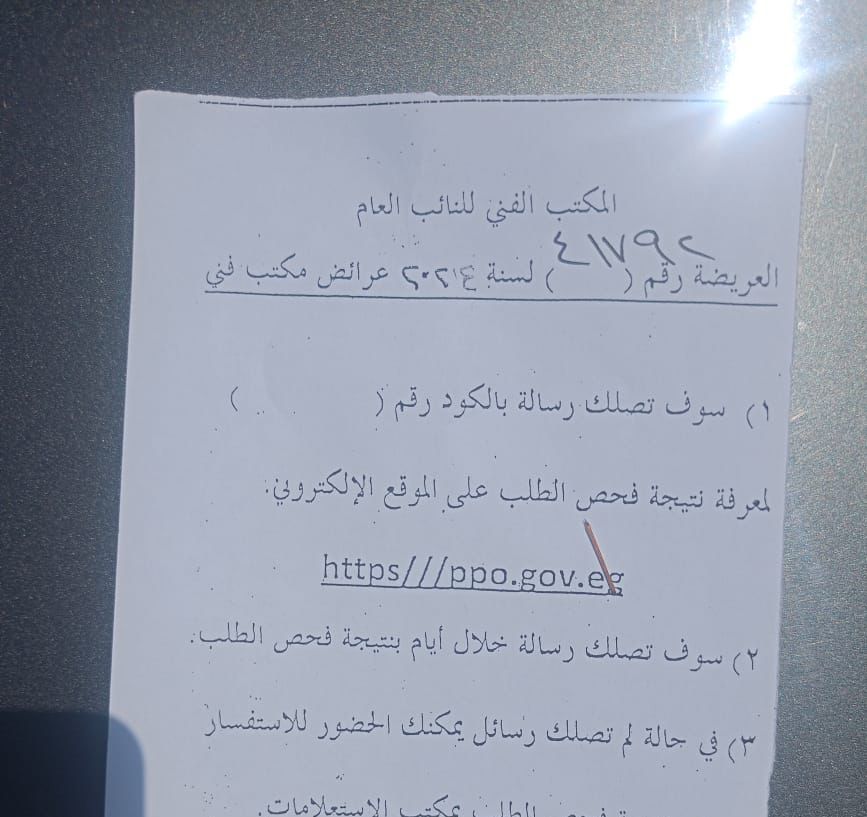 المكتب الفني للنائب العام
العريضة رقم (٤١٧٩٢) لسنة ٢٠٢٤ عرائض مكتب فني
١) سوف تصلك رسالة بالكود رقم ( )
لمعرفة نتيجة فحص الطلب على الموقع الإلكتروني:
https///ppo.gov.eg
٢) سوف تصلك رسالة خلال أيام بنتيجة فحص الطلب.
٣) في حالة لم تصلك رسائل يمكنك الحضور للاستفسار
فحص الطلب بمكتب الاستعلامات.